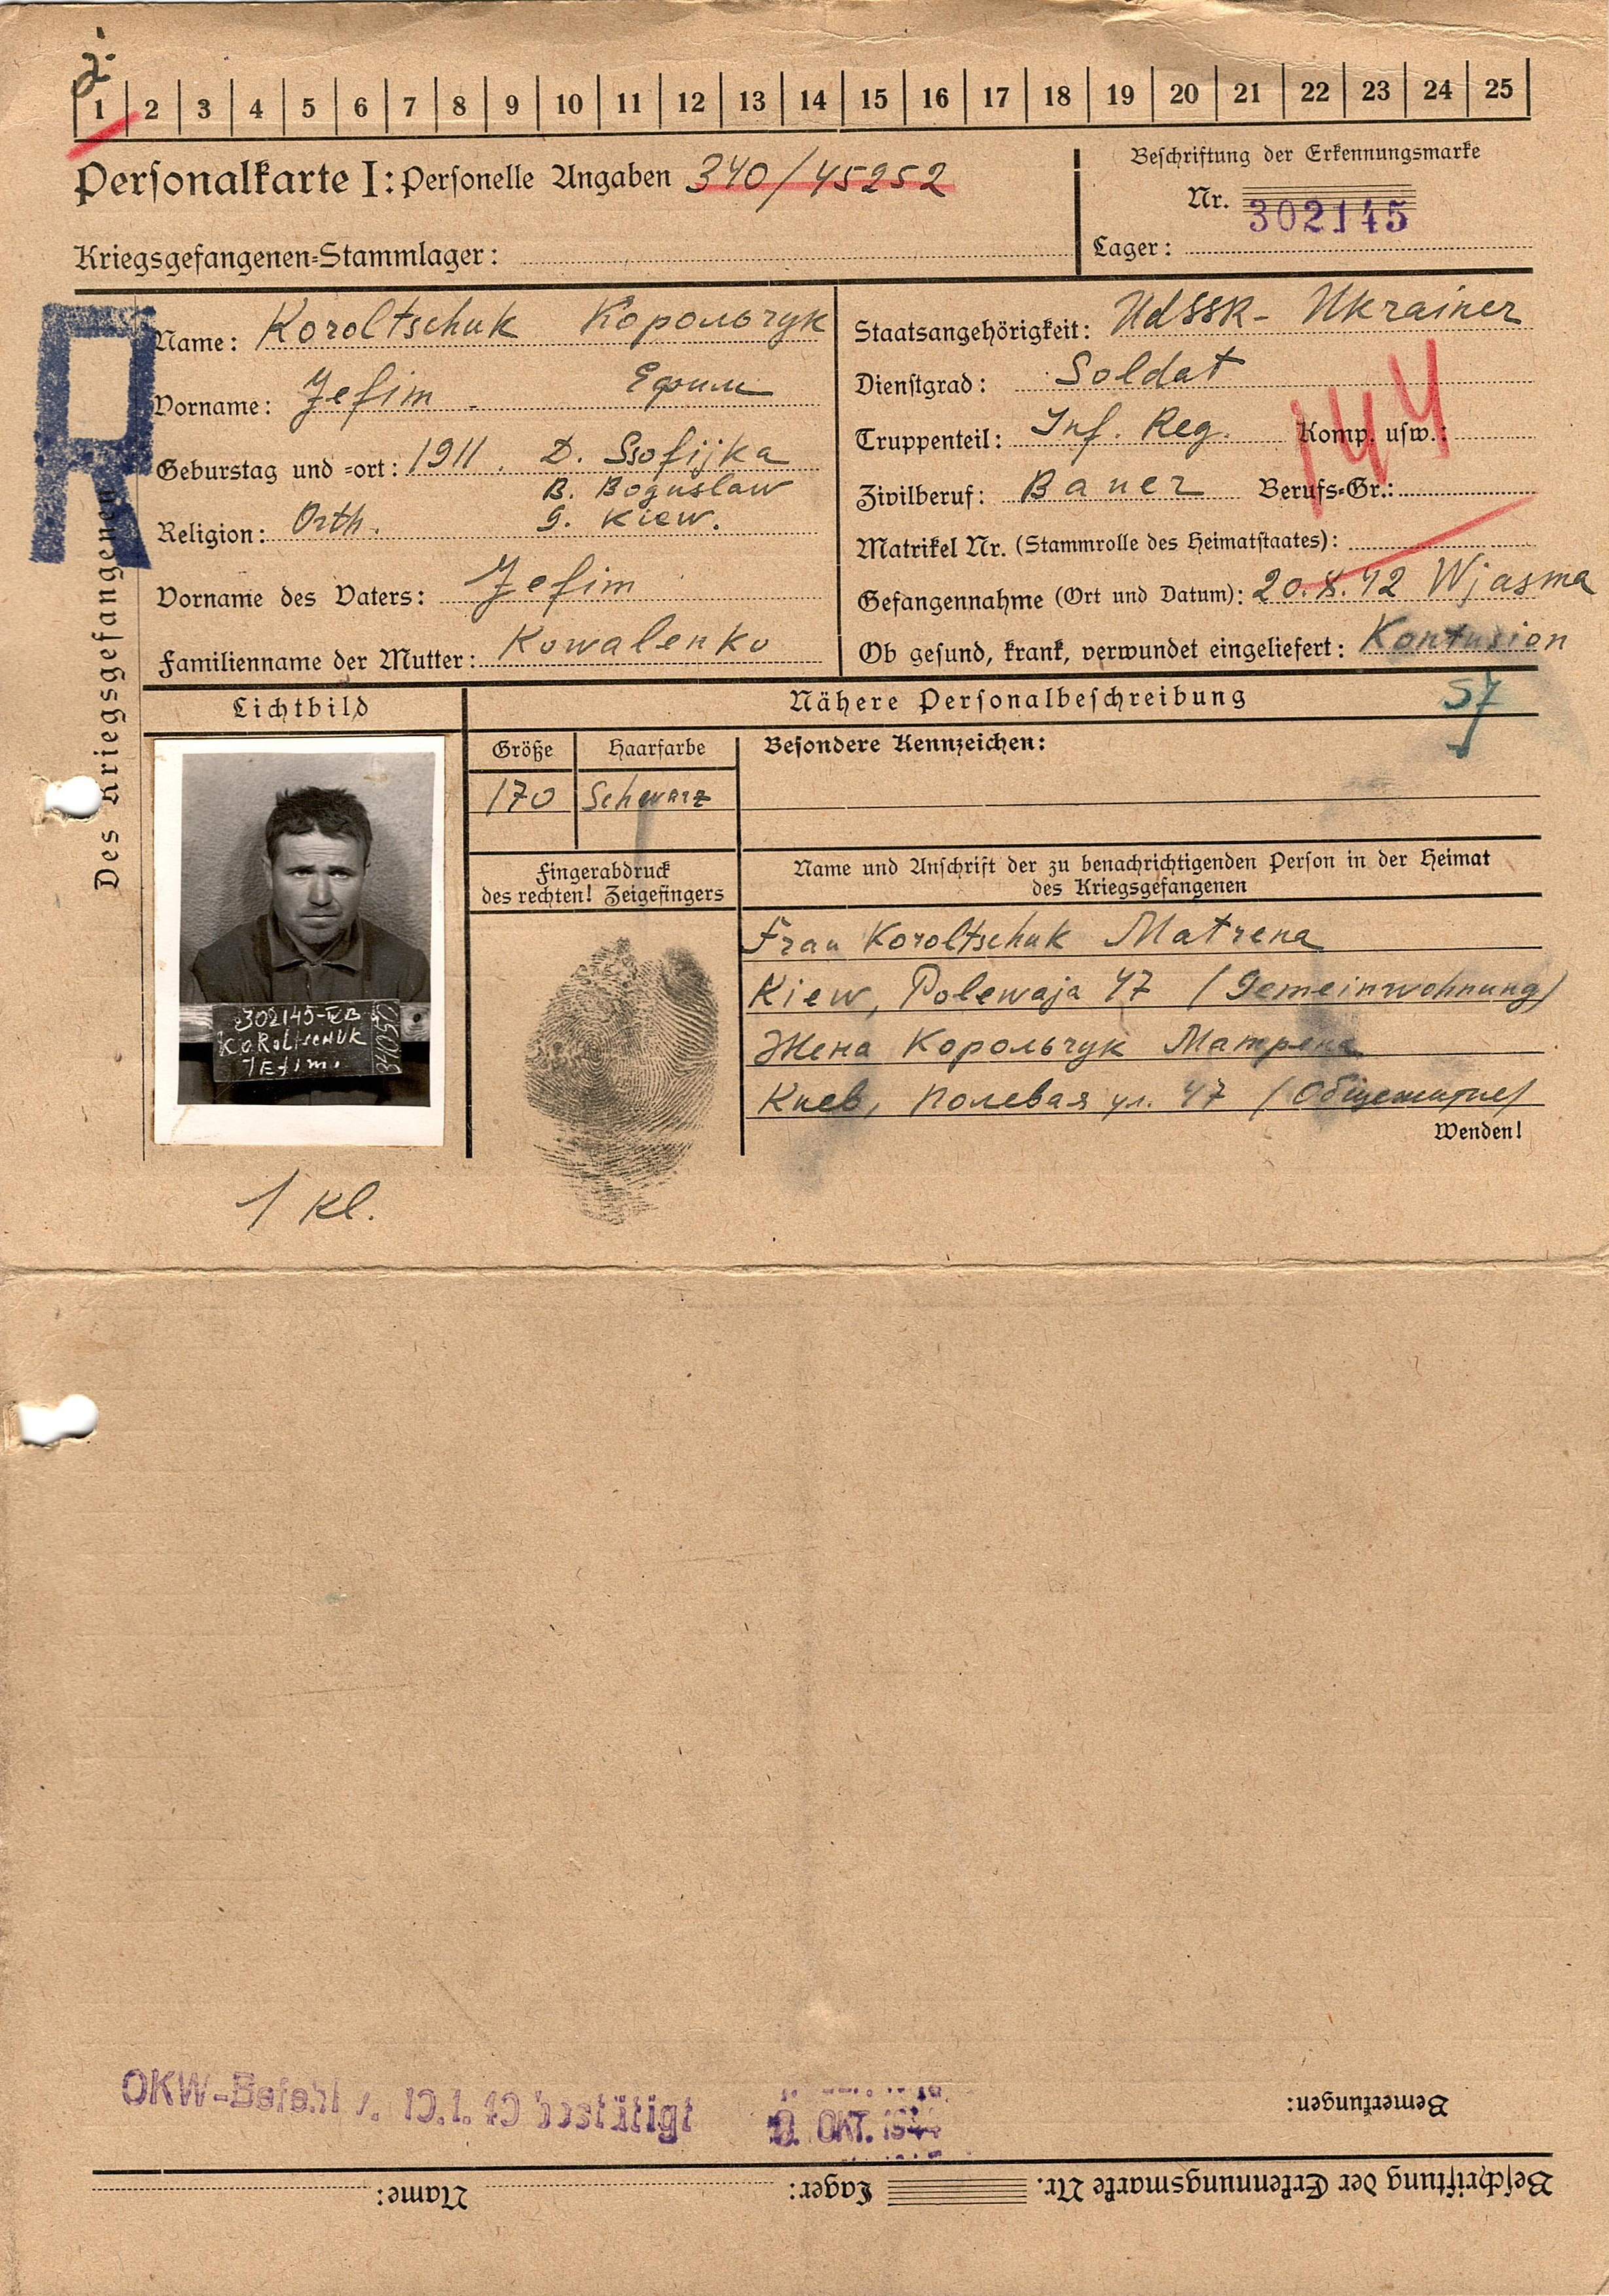 2.
1 2 3 4 5 6 7 8 9 10 11 12 13 14 15 16 17 18 19 20 21 22 23 24 25
Personalkarte I: Personelle Angaben 340/45252
Beschriftung der Erkennungsmarke
Nr. 302145
Kriegsgefangenen-Stammlager:
Lager:
R
Des Kriegsgefangenen
Name: Koroltschuk Корольчук
Vorname: Jefim Ефим
Geburstag und -ort: 1911. D. Ssofijka
B. Boguslaw
Religion: Orth. G. Kiew.
Vorname des Vaters: Jefim
Familienname der Mutter: Kowalenko
Staatsangehörigkeit: UdSSR- Ukrainer
Dienstgrad: Soldat
Truppenteil: Inf. Reg. Komp. usw.:
144
Zivilberuf: Bauer Berufs-Gr.:
Matrikel Nr. (Stammrolle des Heimatstaates):
Gefangennahme (Ort und Datum): 20.8.42 Wjasma
Ob gesund, krank, verwundet eingeliefert: Kontusion
Lichtbild
Nähere Personalbeschreibung
57
Größe Haarfarbe Besondere Kennzeichen:
170 Schwarz
Fingerabdruck
des rechten! Zeigefingers
Name und Anschrift der zu benachrichtigenden Person in der Heimat
des Kriegsgefangenen
Frau Koroltschuk Matrena
Kiew, Polewaja 47 (Gemeinwohnung)
Жена Корольчук Матрена
Киев, Полевая ул. 47 (Общежитие)
Wenden!
302145-IVB
KoRoltscHUK
JEfim.
1 Kl.
OKW-Befehl v. bestätigt
OKT.
Bemerkungen:
Beschriftung der Erkennungsmarke Nr. Lager: Name: